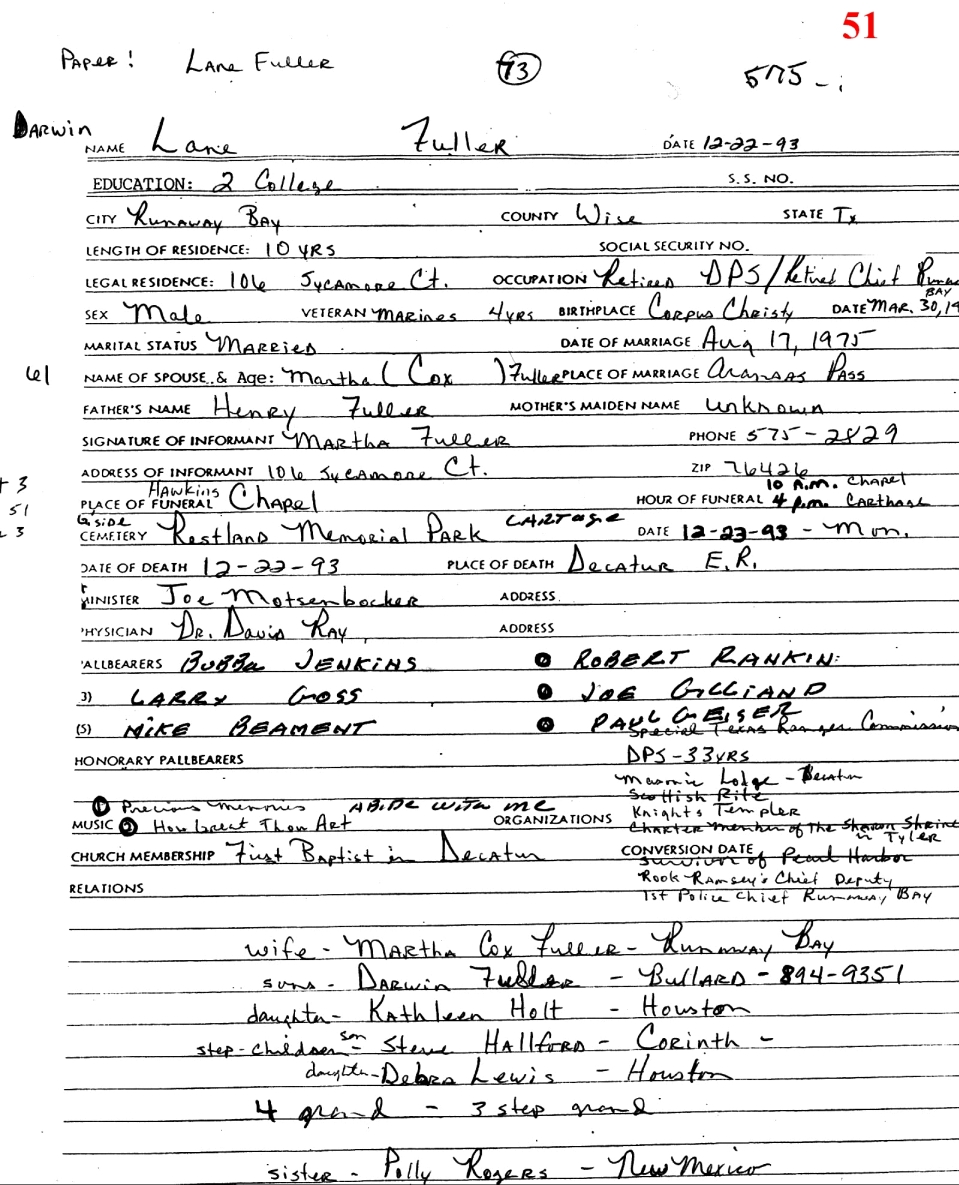 51
PAPER! LANE FULLER 73 575-
DARWIN
NAME Lane Fuller DATE 12-22-93
EDUCATION: 2 College S.S. NO.
CITY Runaway Bay COUNTY Wise STATE Tx
LENGTH OF RESIDENCE: 10 YRS SOCIAL SECURITY NO.
LEGAL RESIDENCE: 106 Sycamore Ct. OCCUPATION Retired DPS/Retired Chief
BAY
SEX Male VETERAN Marines 4yrs BIRTHPLACE Corpus Christy DATE MAR. 30, 19
MARITAL STATUS Married DATE OF MARRIAGE Aug 17, 1975
61 NAME OF SPOUSE & Age: Martha (Cox) Fuller PLACE OF MARRIAGE Aransas Pass
FATHER'S NAME Henry Fuller MOTHER'S MAIDEN NAME unknown
SIGNATURE OF INFORMANT Martha Fuller PHONE 575-2829
ADDRESS OF INFORMANT 106 Sycamore Ct. ZIP 76426
3 10 A.M. Chapel
51 PLACE OF FUNERAL Hawkins Chapel HOUR OF FUNERAL 4 p.m. Carthage
3 Gside CEMETERY Restland Memorial Park CARTAGE DATE 12-23-93 - Mon.
DATE OF DEATH 12-22-93 PLACE OF DEATH Decatur E.R.
MINISTER Joe Motsenbocker ADDRESS
PHYSICIAN Dr. David Ray ADDRESS
PALLBEARERS BUBBa JENKINS ROBERT RANKIN
3) LARRY GOSS JOE GILLIAND
(5) MIKE BEAMENT PAUL GEISER
Special Texas Ranger Commission
HONORARY PALLBEARERS DPS-33yrs
Masonic Lodge - Decatur
Scottish Rite
① Precious Memories ABIDE WITH ME Knights Templer
MUSIC ② How Great Thou Art ORGANIZATIONS Charter member of The Sharon Shrine
in Tyler
CHURCH MEMBERSHIP First Baptist in Decatur CONVERSION DATE
Survivor of Pearl Harbor
RELATIONS Rook Ramsey's Chief Deputy
1st Police Chief Runaway Bay
wife - Martha Cox Fuller - Runaway Bay
sons - Darwin Fuller - Bullard - 894-9351
daughter - Kathleen Holt - Houston
step-children son - Steve Hallford - Corinth -
daughter - Debra Lewis - Houston
4 grand - 3 step grand
sister - Polly Rogers - New Mexico